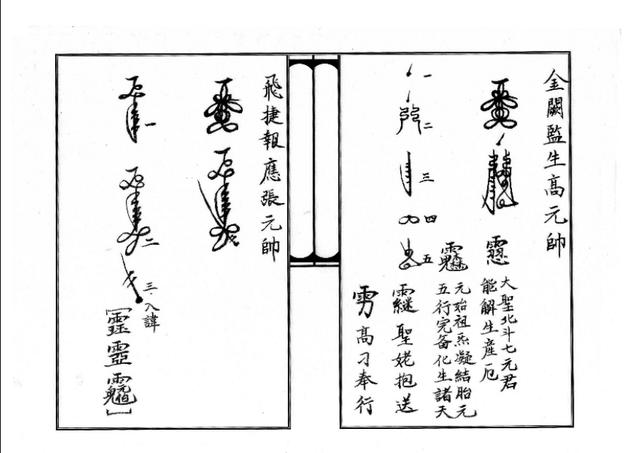 金闕監生高元帥
大聖北斗七元君
能解生產厄
元始祖炁凝結胎元
五行完备化生諸天
一
二
三
四
五
聖姥抱送
高刁奉行
飛捷報應張元帥
一
二
三.入諱